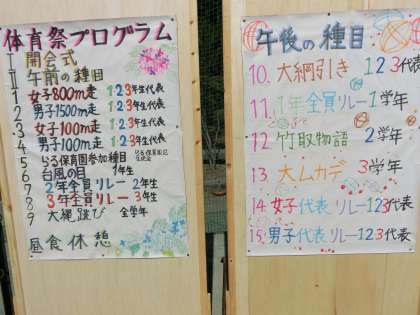 体育祭プログラム
I 開会式
II 午前の種目
1 女子800m走 1·2·3年生代表
2 男子1500m走 1·2·3年生代表
3 女子100m走 1·2·3年生代表
4 男子100m走 1·2·3年生代表
5 ひる保育園参加種目
6 台風の目 1年生
7 2年全員リレー 2年生
8 3年全員リレー 3年生
9 大縄跳び 全学年
昼食休憩
午後の種目
10. 大綱引き 1 2 3 代表
11. 1年全員リレー 1学年
12 竹取物語 2学年
13 大ムカデ 3学年
14. 女子代表リレー 1 2 3 代表
15. 男子代表リレー 1 2 3 代表